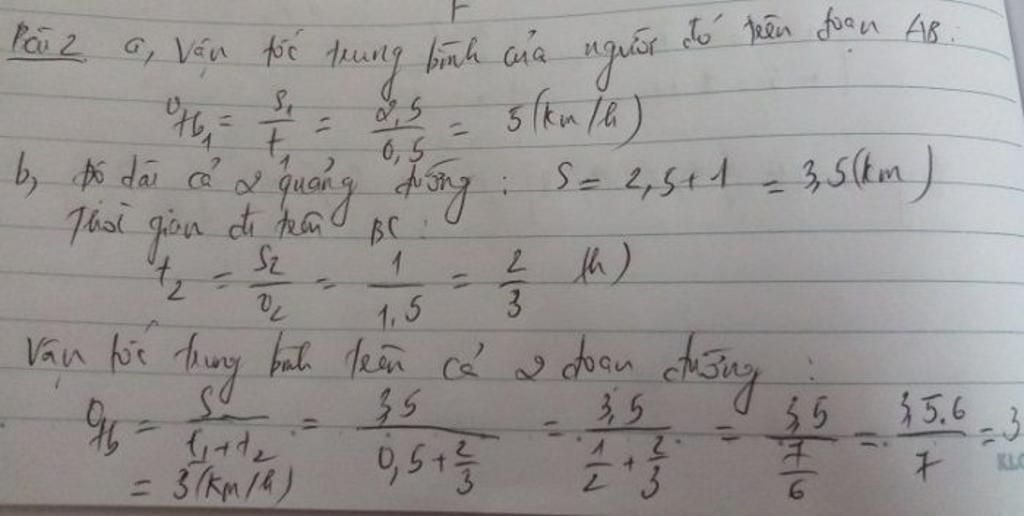 Bài 2 a, Vận tốc trung bình của người đó trên đoạn AB.
v_tb1 = S1/t1 = 2,5/0,5 = 5 (km/h)
b, Độ dài cả 2 quảng đường : S = 2,5+1 = 3,5(km)
Thời gian đi trên BC :
t2 = S2/v2 = 1/1,5 = 2/3 (h)
Vận tốc trung bình trên cả 2 đoạn đường :
v_tb = S/(t1+t2) = 3,5/(0,5+2/3) = 3,5/(1/2+2/3) = 3,5/(7/6) = 3,5.6/7 = 3
= 3(km/h)